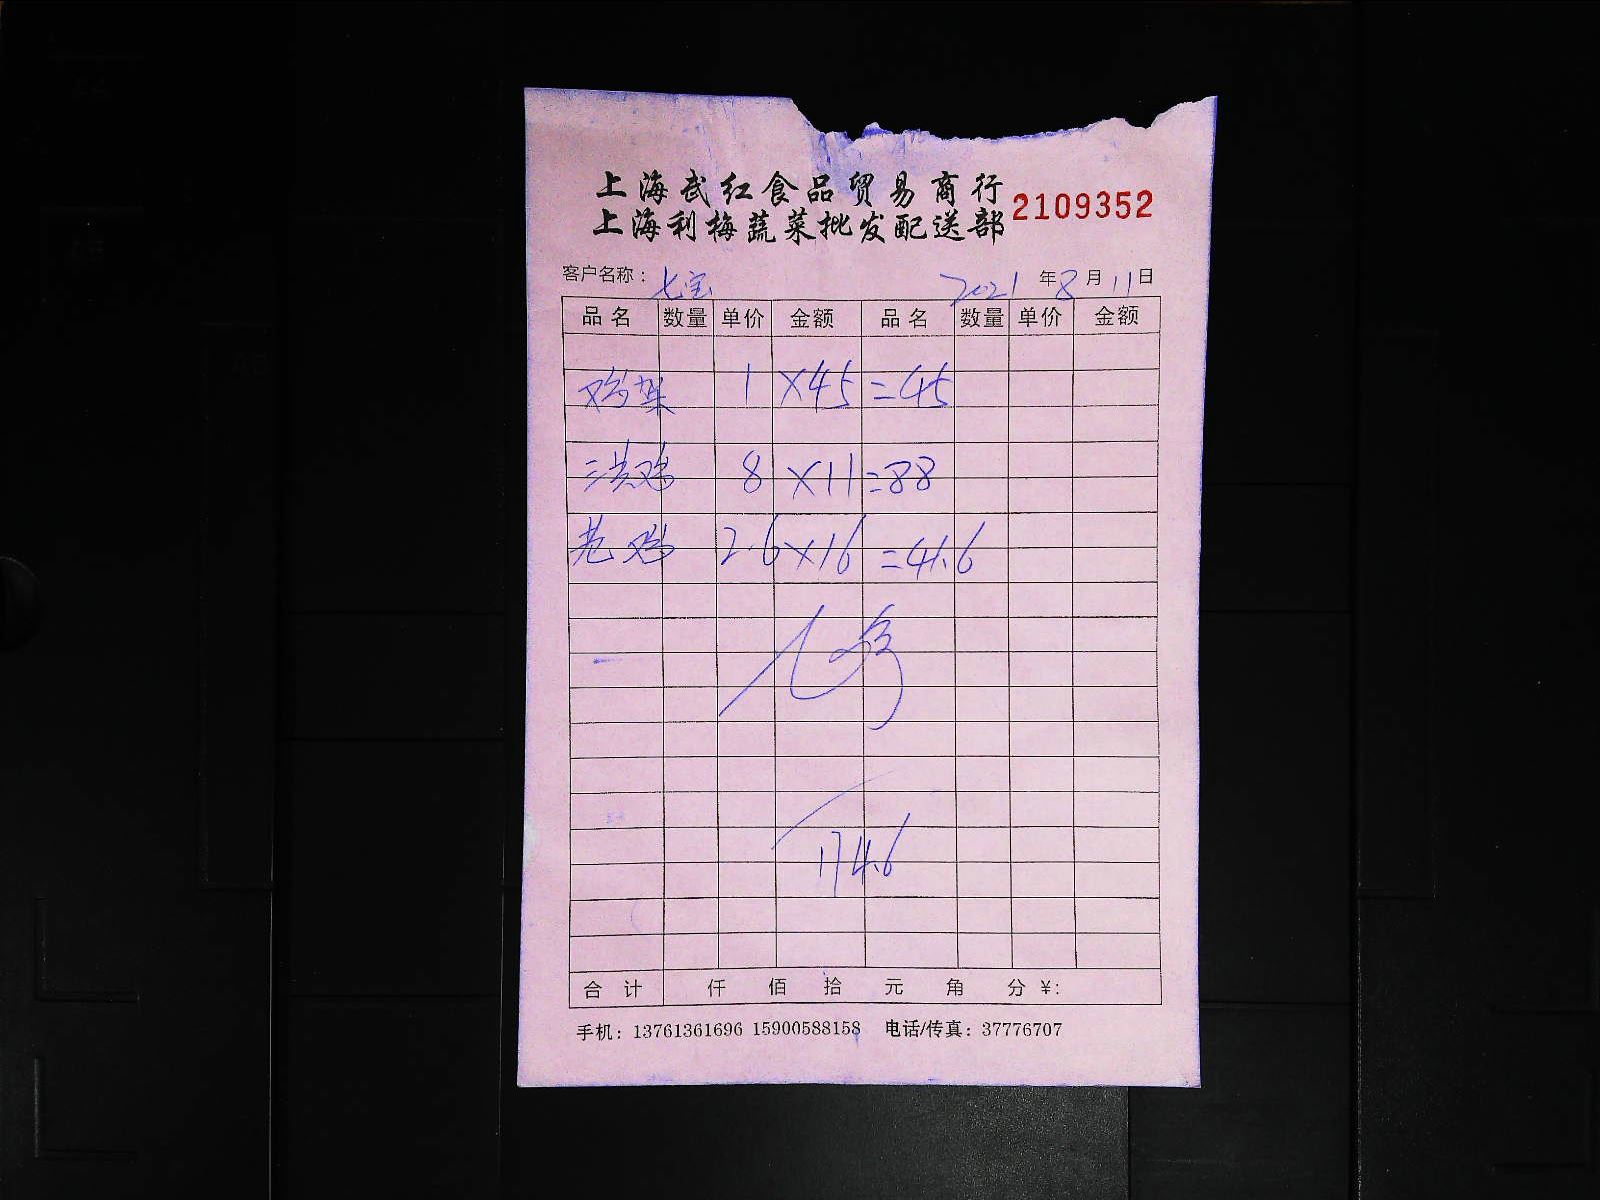 上海武红食品贸易商行
上海利梅蔬菜批发配送部 2109352
客户名称：七宝 2021 年 8 月 11 日
品名 数量 单价 金额 品名 数量 单价 金额
鸡架 1 ×45 =45
三黄鸡 8 ×11 =88
老鸡 2.6×16 =41.6
174.6
合计 仟 佰 拾 元 角 分 ¥:
手机：13761361696 15900588158 电话/传真：37776707